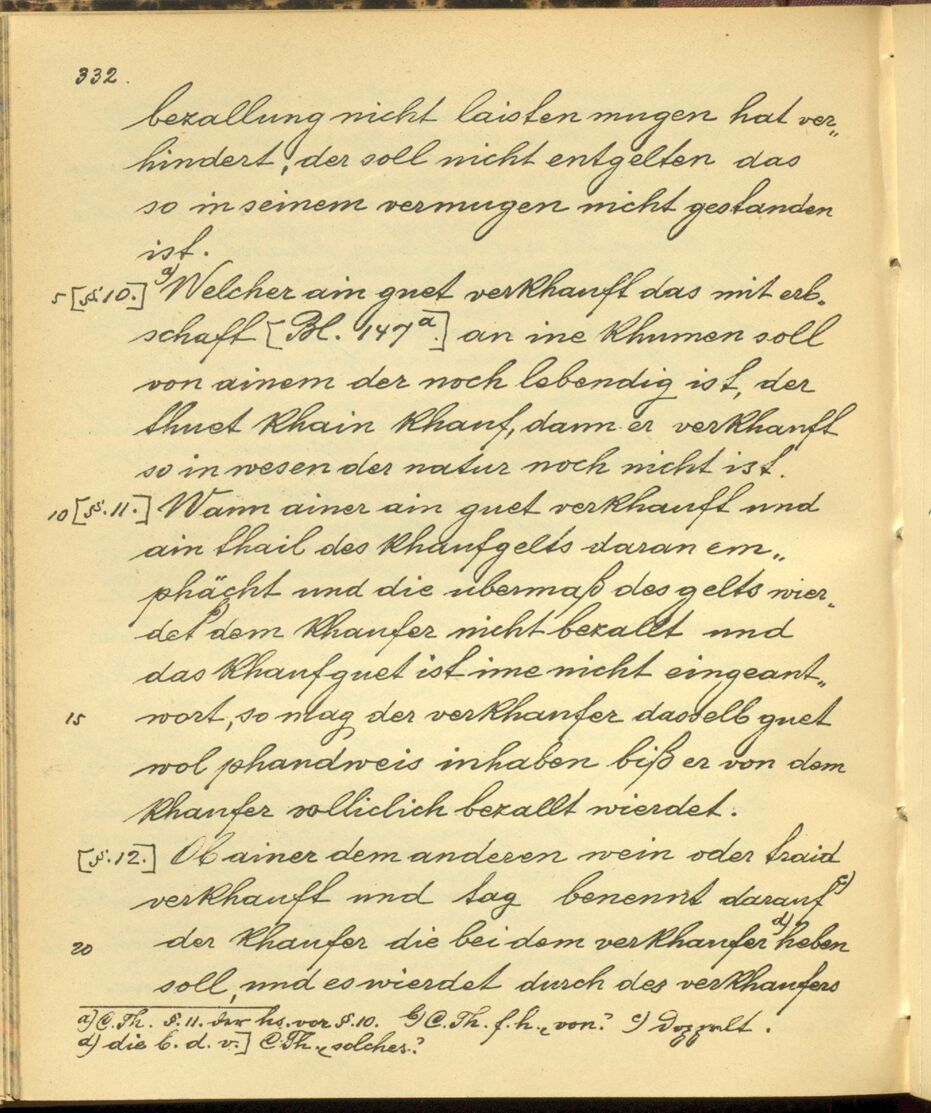 332.
bezallung nicht laisten mugen hat ver„
hindert, der soll nicht entgelten das
so in seinem vermugen nicht gestanden
ist.
5 [§ 10.] a) Welcher ain guet verkhauft das mit erb„
schaft [Bl. 147a.] an ine khumen soll
von ainem der noch lebendig ist, der
thuet khain khauf, dann er verkhauft
so in wesen der natur noch nicht ist.
10 [§. 11.] Wann ainer ain guet verkhauft und
ain thail des khaufgelts daran em„
phächt und die ubermaß des gelts wier„
det b) dem khaufer nicht bezallt und
das khaufguet ist ime nicht eingeant„
15 wort, so mag der verkhaufer dasselb guet
wol phandweis inhaben biß er von dem
khaufer volliclich bezallt wierdet.
[§. 12.] Ob ainer dem anderen wein oder traid
verkhauft und tag benennt darauf c)
20 der khaufer die bei dem verkhaufer d) heben
soll, und es wierdet durch des verkhaufers
a) C. Th. §. 11. hs. vor §. 10. b) C. Th. f. h. „von? c) Doppelt.
d) die b. d. v.] C. Th. „solches?